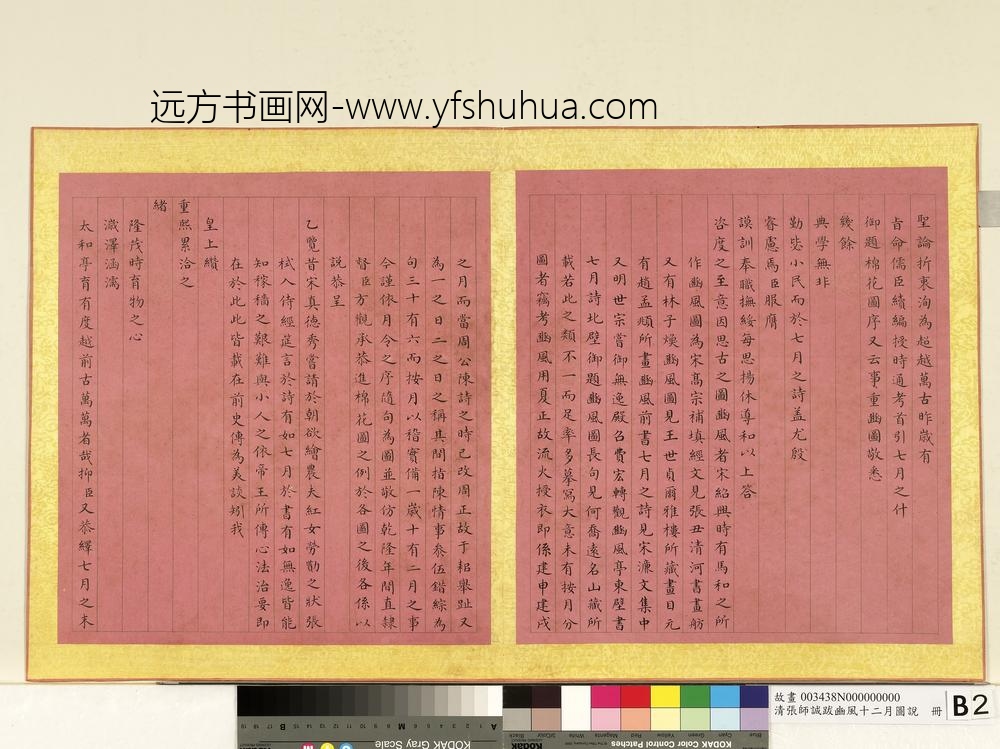 远方书画网-www.yfshuhua.com
聖論折衷洵為超越萬古昨歲有
旨命儒臣續編授時通考首引七月之什
御題棉花圖序又云事重豳圖敬悉
幾餘
典學無非
勤毖小民而於七月之詩蓋尤殷
睿慮焉臣服膺
謨訓奉職撫綏每思揚休導和以上答
咨度之至意因思古之圖豳風者宋紹興時有馬和之所
作豳風圖為宋髙宗補填經文見張丑清河書畫舫
又有林子煥豳風圖見王世貞爾雅樓所藏畫目元
有趙孟頫所畫豳風前書七月之詩見宋濂文集中
又明世宗嘗御無逸殿召費宏轉觀豳風亭東壁書
七月詩北壁御題豳風圖長句見何喬遠名山藏所
載若此之類不一而足率多摹寫大意未有按月分
圖者竊考豳風用夏正故流火授衣即係建申建戌
之月而當周公陳詩之時已改周正故于耜舉趾又
為一之日二之日之稱其間指陳情事叅伍錯綜為
句三十有六而按月以稽實備一歲十有二月之事
今謹依月令之序隨句為圖並敬仿乾隆年間直隸
督臣方觀承恭進棉花圖之例於各圖之後各係以
說恭呈
乙覽昔宋真德秀嘗請於朝欲繪農夫紅女勞勩之狀張
栻入侍經莚言於詩有如七月於書有如無逸皆能
知稼穡之艱難與小人之依帝王所傳心法治要即
在於此此皆載在前史傳為美談矧我
皇上纘
重熙累洽之
緒
隆茂時育物之心
濊澤涵濡
太和亭育有度越前古萬萬者哉抑臣又恭繹七月之末
故畫 003438N000000000
清張師誠跋豳風十二月圖說 冊
B2
KODAK Gray Scale
Kodak Color Control Patches
Blue
Cyan
Green
Yellow
Red
Magenta
White
3/Color
Black